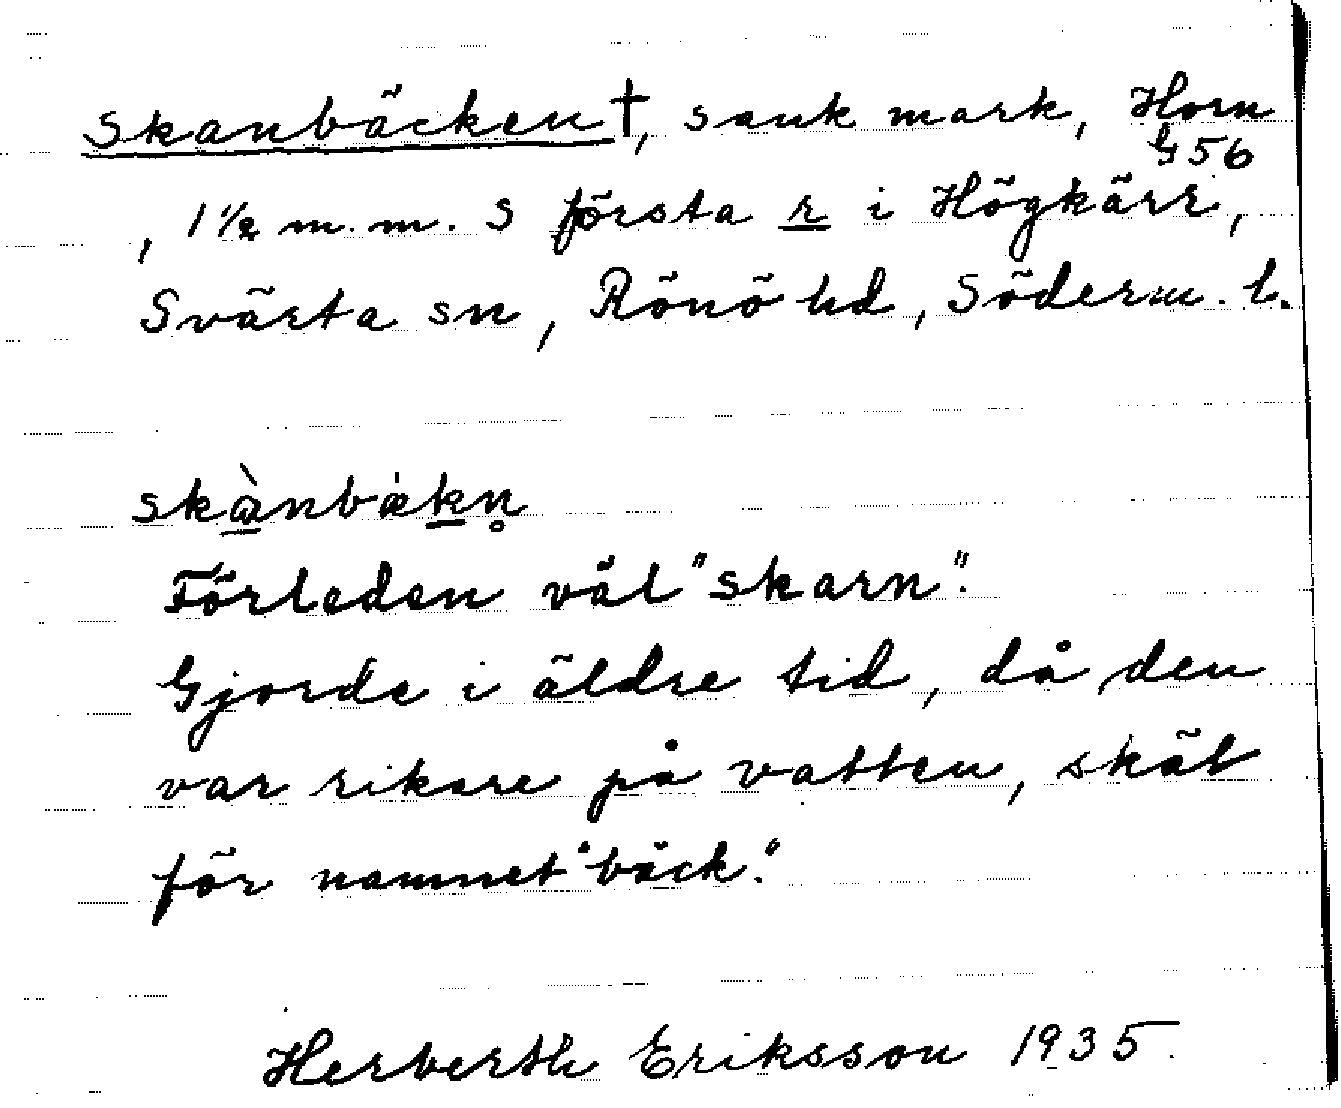 Skanbäcken†, sank mark, Horn
G 56
, 1½ m.m. S första r i Högkärr,
Svärta sn, Rönö hd, Söderm. l.
skànbækn̥
Förleden väl "skarn".
Gjorde i äldre tid, då den
var rikare på vatten, skäl
för namnet "bäck".
Herberth Eriksson 1935.